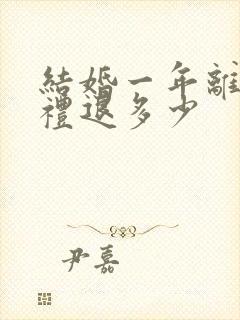 結婚一年離
禮退多少
尹嘉